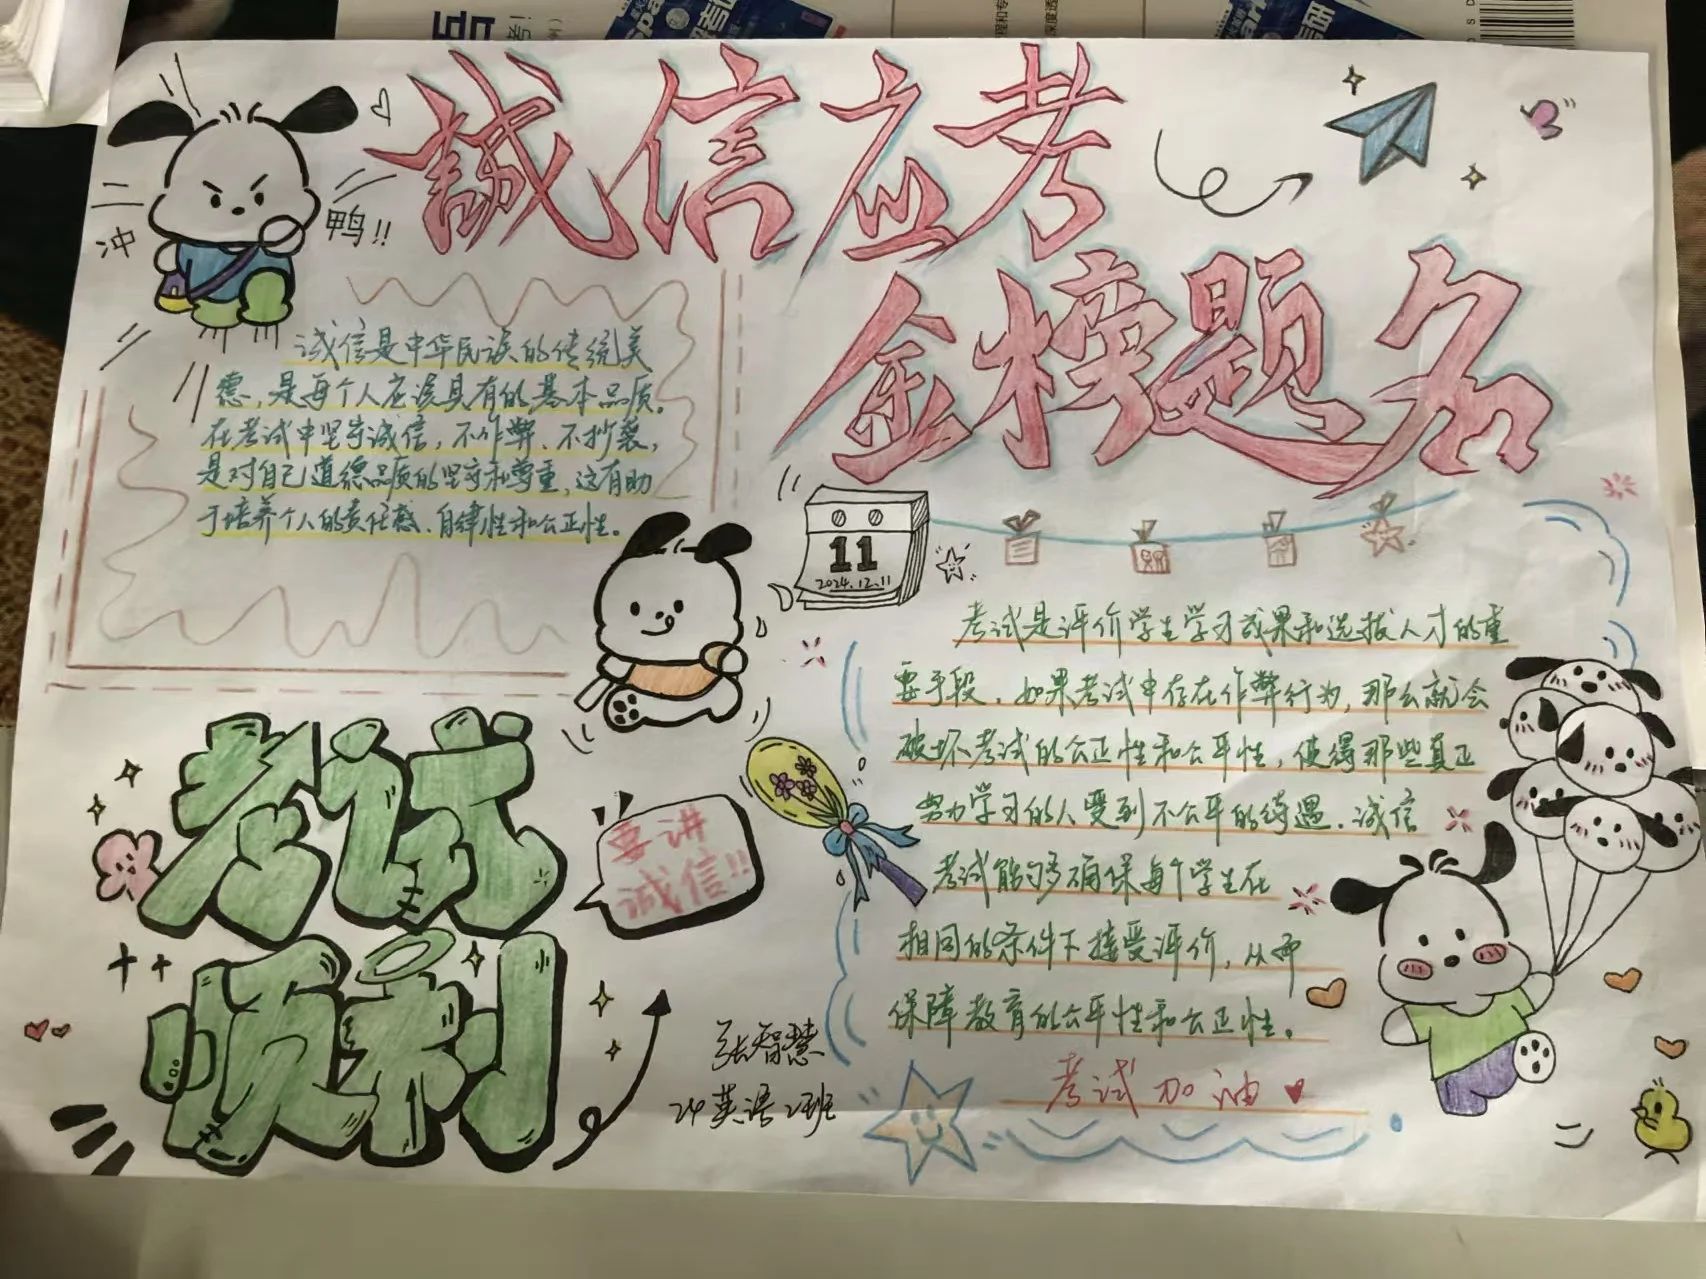 誠信应考
金榜题名
冲
鸭!!
诚信是中华民族的传统美
德，是每个人应该具有的基本品质。
在考试中坚守诚信，不作弊、不抄袭，
是对自己道德品质的坚守和尊重，这有助
于培养个人的责任感、自律性和公正性。
11
2024.12.11
考试是评价学生学习成果和选拔人才的重
要手段，如果考试中存在作弊行为，那么就会
破坏考试的公正性和公平性，使得那些真正
努力学习的人受到不公平的待遇。诚信
考试能够确保每个学生在
相同的条件下接受评价，从而
保障教育的公平性和公正性。
考试加油
考试
顺利
要讲
诚信!!
张智慧
24英语2班